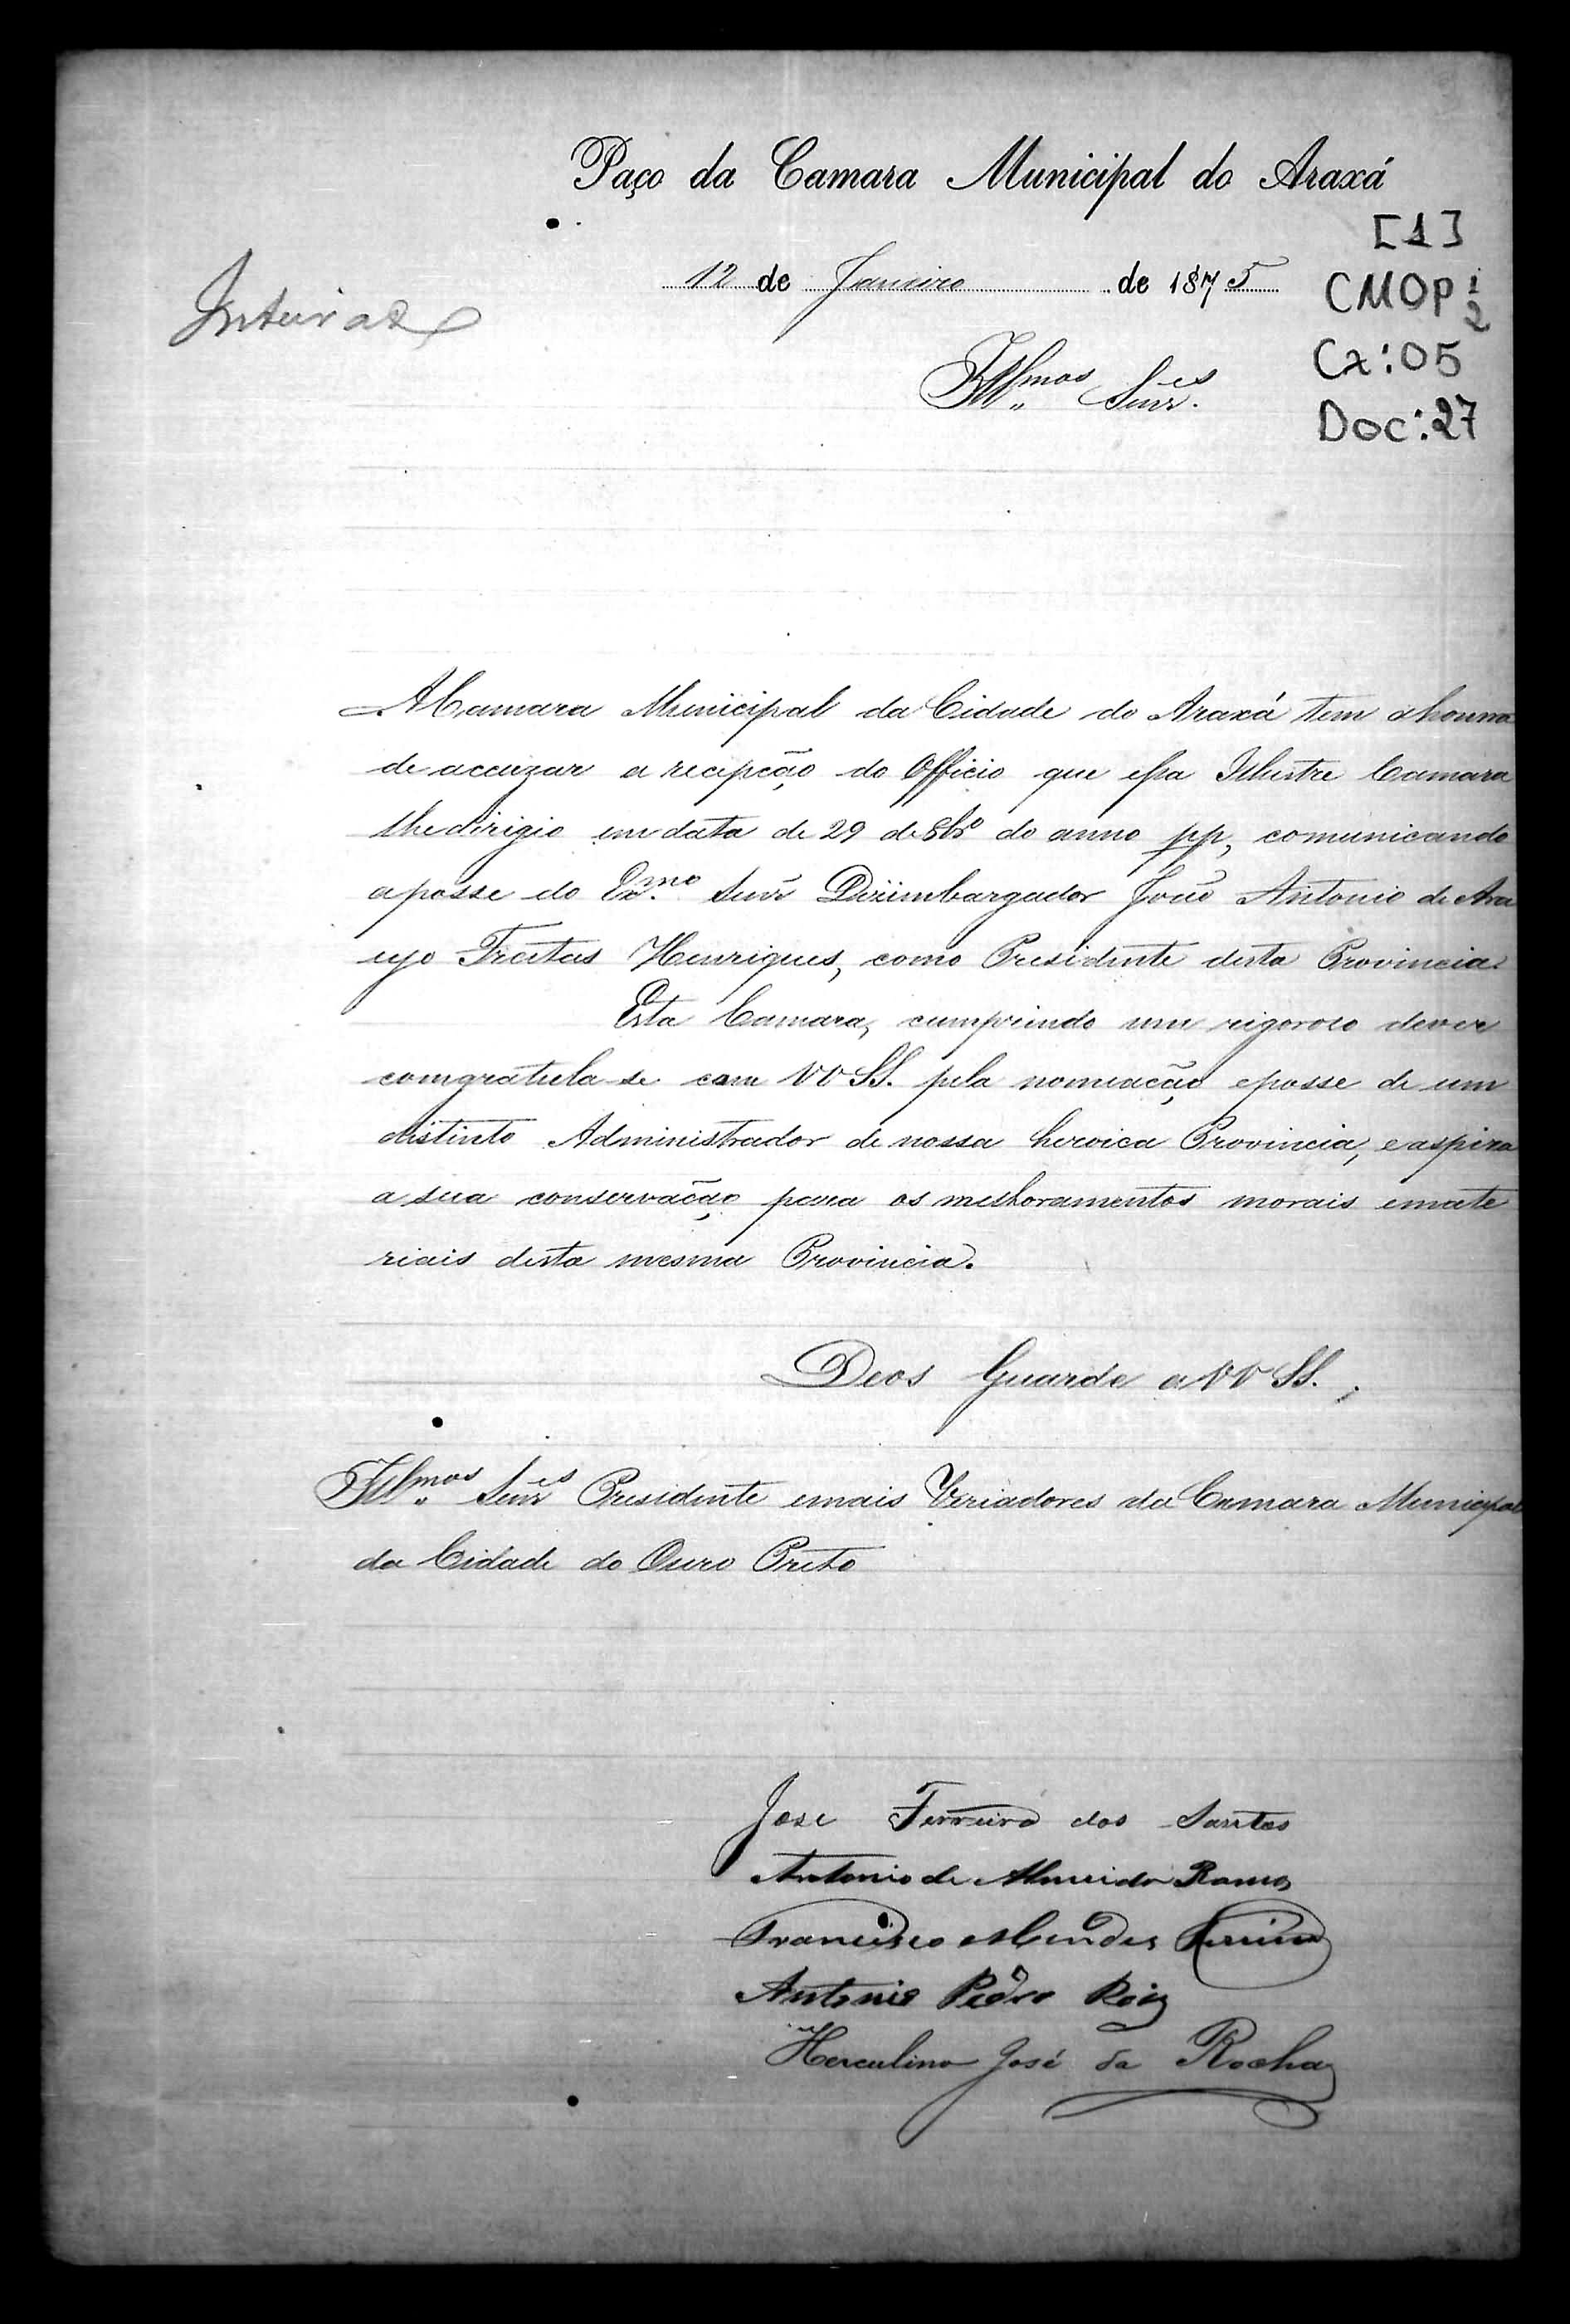 Paço da Camara Municipal do Araxá
[1]
12 de Janeiro de 1875
CMOP 1/2
Inteirada
Cx:05
Illmos Senres
Doc:27
A Camara Municipal da Cidade do Araxá tem a honra
de accuzar a recepção do Officio que essa Illustre Camara
lhe dirigio em data de 29 de 8bro do anno pp, comunicando
a posse do Exmo. Senr Dezimbargador João Antonio de Ara
ujo Freitas Henriques, como Presidente desta Provincia.
Esta Camara, cumprindo um rigoroso dever
comgratula se com VV SS. pela nomeação e posse de um
distinto Administrador de nossa heroica Provincia, e aspira
a sua conservação para os melhoramentos morais e mate
riais desta mesma Provincia.
Deos Guarde a VV SS.
Illmos Senres Presidente e mais Veriadores da Camara Municipal
da Cidade do Ouro Preto
Jose Ferreira dos Santos
Antonio de Almeida Ramos
Francisco Mendes Ferreira
Antonio Pedro Roiz
Herculino José da Rocha